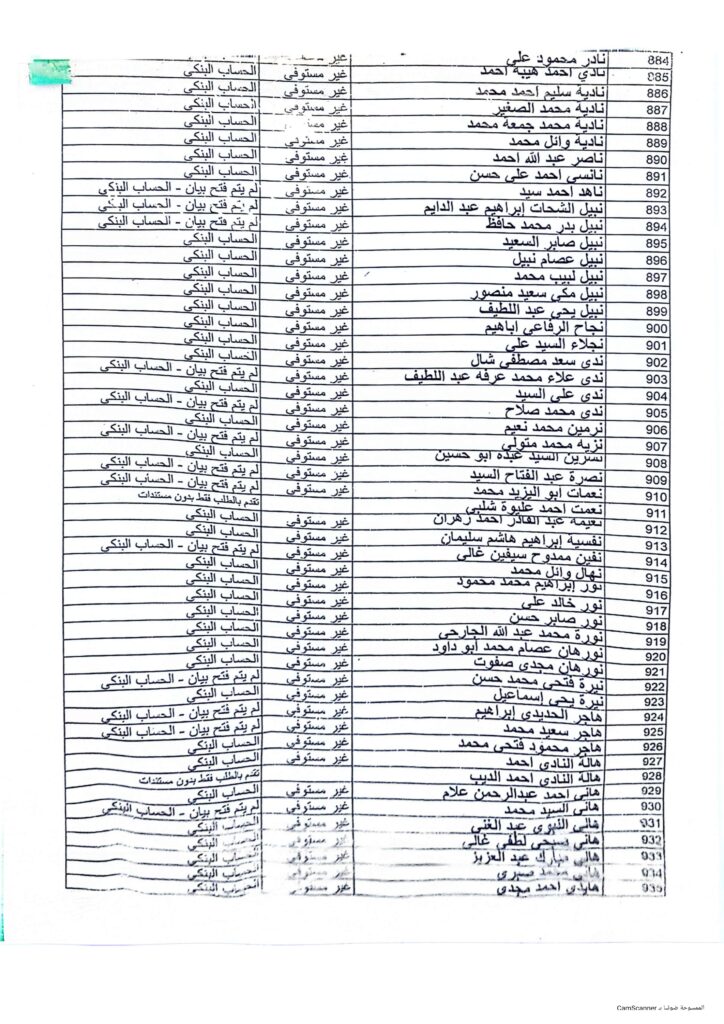 884 نادر محمود على غير
885 نادي احمد هيبة احمد غير مستوفي الحساب البنكي
886 نادية سليم احمد محمد غير مستوفي الحساب البنكي
887 نادية محمد الصغير غير مستوفي الحساب البنكي
888 نادية محمد جمعة محمد غير الحساب البنكي
889 نادية وائل محمد غير مستوفي الحساب البنكي
890 ناصر عبد الله احمد غير مستوفي الحساب البنكي
891 نانسي احمد على حسن غير مستوفي الحساب البنكي
892 ناهد احمد سيد غير مستوفي لم يتم فتح بيان - الحساب البنكي
893 نبيل الشحات إبراهيم عبد الدايم غير مستوفي لم يتم فتح بيان - الحساب البنكي
894 نبيل بدر محمد حافظ غير مستوفي لم يتم فتح بيان - الحساب البنكي
895 نبيل صابر السعيد غير مستوفي الحساب البنكي
896 نبيل عصام نبيل غير مستوفي الحساب البنكي
897 نبيل لبيب محمد غير مستوفي الحساب البنكي
898 نبيل مكى سعيد منصور غير مستوفي الحساب البنكي
899 نبيل يحى عبد اللطيف غير مستوفي الحساب البنكي
900 نجاح الرفاعى اباهيم غير مستوفي الحساب البنكي
901 نجلاء السيد على غير مستوفي الحساب البنكي
902 ندى سعد مصطفى شال غير مستوفي الحساب البنكي
903 ندى علاء محمد عرفه عبد اللطيف غير مستوفي لم يتم فتح بيان - الحساب البنكي
904 ندى على السيد غير مستوفي الحساب البنكي
905 ندى محمد صلاح غير مستوفي لم يتم فتح بيان - الحساب البنكي
906 نرمين محمد نعيم غير مستوفي الحساب البنكي
907 نزيه محمد متولى غير مستوفي لم يتم فتح بيان - الحساب البنكي
908 نسرين السيد عبده ابو حسين غير مستوفي الحساب البنكي
909 نصرة عبد الفتاح السيد غير مستوفي لم يتم فتح بيان - الحساب البنكي
910 نعمات ابو اليزيد محمد غير مستوفي لم يتم فتح بيان - الحساب البنكي
911 نعمت احمد عليوة شلبي تقدم بالطلب فقط بدون مستندات
912 نعيمه عبد القادر احمد زهران غير مستوفي الحساب البنكي
913 نفسية إبراهيم هاشم سليمان غير مستوفي الحساب البنكي
914 نفين ممدوح سيفين غالى غير مستوفي لم يتم فتح بيان - الحساب البنكي
915 نهال وائل محمد غير مستوفي الحساب البنكي
916 نور إبراهيم محمد محمود غير مستوفي الحساب البنكي
917 نور خالد على غير مستوفي الحساب البنكي
918 نور صابر حسن غير مستوفي الحساب البنكي
919 نورة محمد عبد الله الجارحى غير مستوفي الحساب البنكي
920 نورهان عصام محمد أبو داود غير مستوفي الحساب البنكي
921 نورهان مجدى صفوت غير مستوفي الحساب البنكي
922 نيرة فتحى محمد حسن غير مستوفي لم يتم فتح بيان - الحساب البنكي
923 نيرة يحى إسماعيل غير مستوفي الحساب البنكي
924 هاجر الحديدى إبراهيم غير مستوفي لم يتم فتح بيان - الحساب البنكي
925 هاجر سعيد محمد غير مستوفي لم يتم فتح بيان - الحساب البنكي
926 هاجر محمود فتحى محمد غير مستوفي الحساب البنكي
927 هالة النادى احمد غير مستوفي الحساب البنكي
928 هالة النادى احمد الديب تقدم بالطلب فقط بدون مستندات
929 هانى احمد عبدالرحمن علام غير مستوفي الحساب البنكي
930 هانى السيد محمد غير مستوفي لم يتم فتح بيان - الحساب البنكي
931 هانى النبوى عبد الغنى غير مستوفي الحساب البنكي
932 هانى صبحى لطفى غالى غير مستوفي الحساب البنكي
933 هانى مبارك عبد العزيز غير مستوفي الحساب البنكي
934 هانى محمد صبرى غير مستوفي الحساب البنكي
935 هايدى احمد مجدى غير مستوفي الحساب البنكي
الممسوحة ضوئيا بـ CamScanner